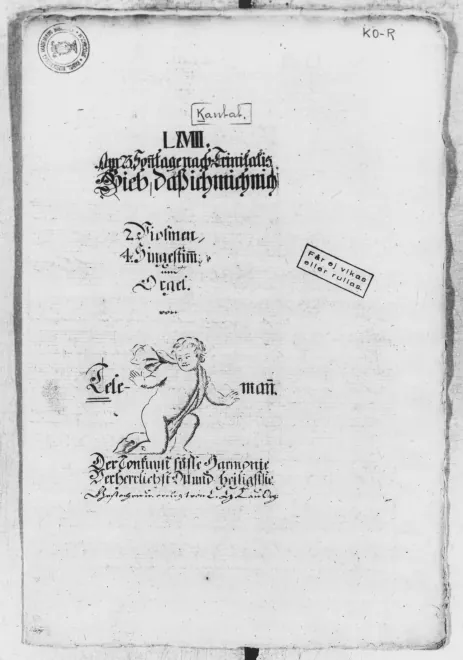 KO-R
Kantat.
LXVIII.
Am 23 Sonntage nach Trinitatis
Gieb, daß ich mich nich
2. Violinen,
4. Singestim̃:
Orgel.
von
Tele- mañ.
Der Tonkunst süsse Harmonie
Verherrlichst Du und heiligst sie.
Får ej vikas
eller rullas.